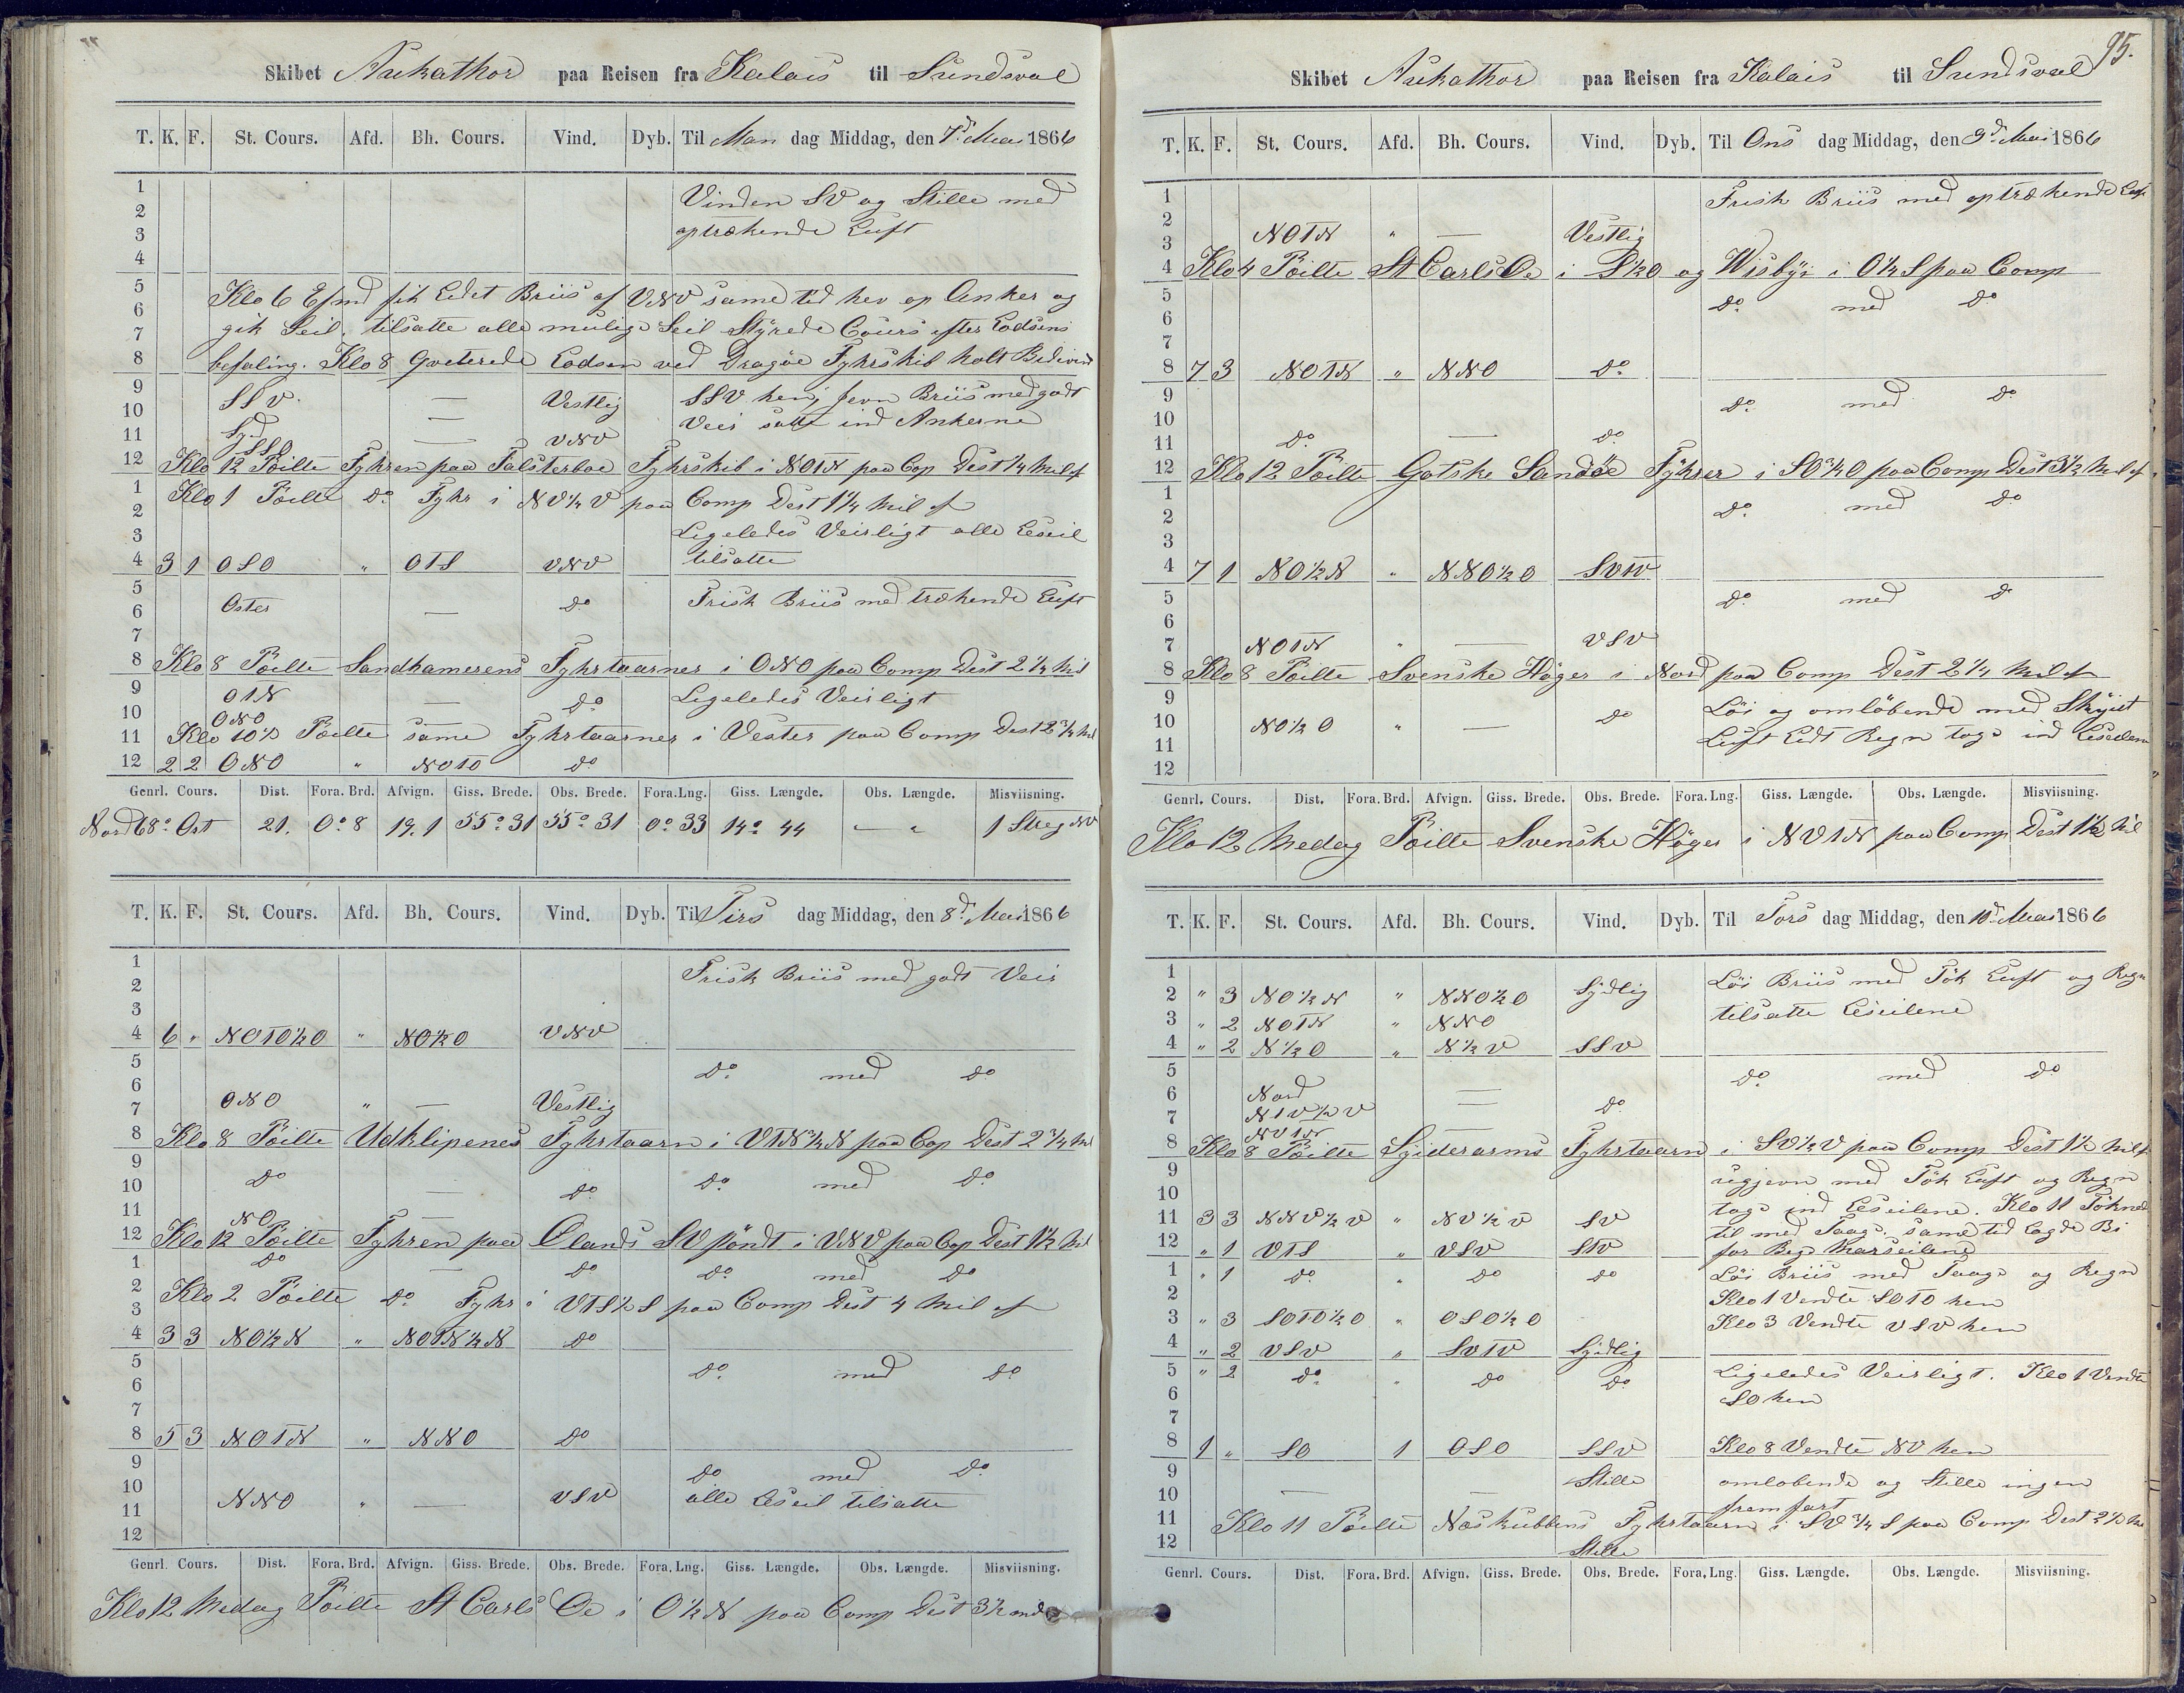 Skibet Nukathor paa Reisen fra Kalais til Sundsval
T. K. F. St. Cours. Afd. Bh. Cours. Vind. Dyb. Til Man dag Middag, den 7d Mai 1866
1 Vinden SV og Stille med
2
3 optrækende Luft
4
5 Klo 6 Efmd fik Lidet Briis af VNV same tid hev op Anker og
6
7 gik Seil. tilsatte alle mulige Seil Styrede Cours efter Lodsens
8 befaling. Klo 8 Qviterede Lodsen ved Dragøe Fyhrskib holt Bidevind
9 SSV. — Vestlig SSV hen, Jevn Briis med godt
10 Syd — VNV Veir satte ind Ankerne
11 SSO
12 Klo 12 Pöilte Fyhren paa Falsterboe Fyhrskib i NOTN paa Cop Dest 1/4 Mil af
1 Klo 1 Pöilte Do Fyhr i NV1/2V paa Comp Dest 1 1/4 Mil af
2
3 Ligeledes Veirligt alle Leseil
4 3 1 OSO " OTS VNV tilsatte
5
6 Oster — do Frisk Briis med trækende Luft
7
8 Klo 8 Pöilte Sandhamerens Fyhrtaarner i ONO paa Comp Dest 2 1/4 Mil
9 OTN — do Ligeledes Veirligt
10 ONO
11 Klo 10 1/2 Pöilte same Fyhrtaarner i Vester paa Comp Dest 2 3/4 Mil
12 2 2 ONO " NOTO do
Genrl. Cours. Dist. Fora. Brd. Afvign. Giss. Brede. Obs. Brede. Fora. Lng. Giss. Længde. Obs. Længde. Misviisning.
Nord 68° Ost 21. 0° 8 19.1 55° 31 55° 31 0° 33 14° 44 — " 1 Streg NV
T. K. F. St. Cours. Afd. Bh. Cours. Vind. Dyb. Til Tirs dag Middag, den 8d Mai 1866
1 Frisk Briis med godt Veir
2
3
4 6 " NOTO1/2O " NO1/2O VNV
5 Do med do
6
7 ONO " — Vestlig
8 Klo 8 Pöilte Udklipenes Fyhrtaarn i VTN3/4N paa Cop Dest 2 3/4 Mil
9 Do — do Do med do
10
11 NO
12 Klo 12 Pöilte Fyhren paa Olands SV pöndt i VNV paa Cop Dest 1 1/2 Mil
1 Do — do Do med do
2 Klo 2 Pöilte do Fyhr i VTS1/2S paa Comp Dest 4 Mil af
3
4 3 3 NO1/2N " NOTN1/2N do
5 Do med do
6
7
8 5 3 NOTN " NNO do
9 Do med do
10 NNO " — VSV alle Leseil tilsatte
11
12
Genrl. Cours. Dist. Fora. Brd. Afvign. Giss. Brede. Obs. Brede. Fora. Lng. Giss. Længde. Obs. Længde. Misviisning.
Klo 12 Medag Pöilte St Carls Oe i O1/2N paa Comp Dest 3 1/2
95.
Skibet Nukathor paa Reisen fra Kalais til Sundsval
T. K. F. St. Cours. Afd. Bh. Cours. Vind. Dyb. Til Ons dag Middag, den 9d Mai 1866
1 Frisk Briis med optrækende Luft
2
3 NOTN " — Vestlig
4 Klo 4 Pöilte St Carls Oe i S1/2O og Wisbÿe i O1/2S paa Comp
5 Do med do
6
7
8 7 3 NOTN " NNO do
9 Do med do
10
11 Do — do
12 Klo 12 Pöilte Gotske Sandöe Fyhrer i SO3/4O paa Comp Dest 3 1/2 Mil af
1 Do med do
2
3
4 7 1 NO1/2N " NNO1/2O SVTV
5 Do med do
6
7 NOTN " — VSV
8 Klo 8 Pöilte Svenske Höger i Nord paa Comp Dest 2 1/4 Mil af
9 Löi og omlöbende med Skyiet
10 NO1/2O " — do
11 Luft Lidt Regn togs ind Leseilene
12
Genrl. Cours. Dist. Fora. Brd. Afvign. Giss. Brede. Obs. Brede. Fora. Lng. Giss. Længde. Obs. Længde. Misviisning.
Klo 12 Medag Pöilte Svenske Höger i NVTN paa Comp Dest 1 1/2 Mil
T. K. F. St. Cours. Afd. Bh. Cours. Vind. Dyb. Til Tors dag Middag, den 10d Mai 1866
1 Löi Briis med Tök Luft og Regn
2 " 3 NO1/2N " NNO1/2O Sydlig
3 " 2 NOTN " NNO tilsatte Leseilene
4 " 2 N1/2O " N1/2V SSV
5 Do med do
6 Nord —
7 NTV1/2V — do
NVTN
8 Klo 8 Pöilte Syiderarms Fyhrtaarn i SV1/2V paa Comp Dest 1 1/2 Mil af
9 ugjevn med Tök Luft og Regn
10 togs ind Leseilene. Klo 11 Töknede
11 3 3 NNV1/2V " NV1/2V SV til med Taage. same tid Lagde Bi
12 " 1 VTS " VSV STV for Beg. Marseilene
1 " 1 do " do do Löi Briis med Taage og Regn
2 Klo 1 Vendte SOTO hen
3 " 3 SOTO1/2O " OSO1/2O Klo 3 Vendte VSV hen
4 " 2 VSV " SVTV Sydlig
5 " 2 do " do do Ligeledes Veirligt. Klo 1 Vendte
6 SO hen
7
8 1 " SO 1 OSO SSV Klo 8 Vendte NV hen
9 Stille omlobende og Stille ingen
10 — — fremfart
11 Klo 11 Pöilte Næskubbens Fyhrtaarn i SV3/4S paa Comp Dest 2 1/2 Mil
12 Stille
Genrl. Cours. Dist. Fora. Brd. Afvign. Giss. Brede. Obs. Brede. Fora. Lng. Giss. Længde. Obs. Længde. Misviisning.